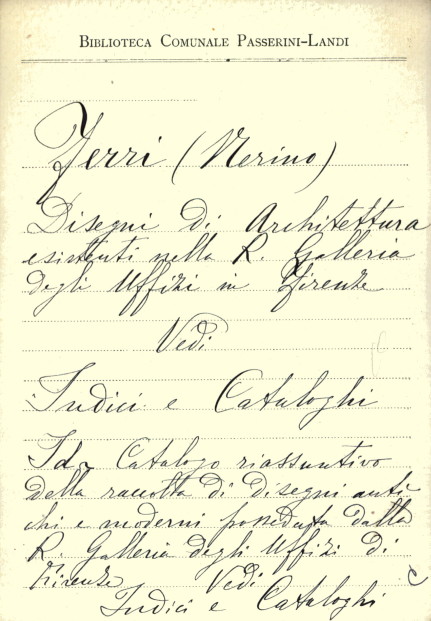 BIBLIOTECA COMUNALE PASSERINI-LANDI
Ferri (Nerino)
Disegni di Architettura
esistenti nella R. Galleria
degli Uffizi in Firenze
Vedi
Indici e Cataloghi
Id. Catalogo riassuntivo
della raccolta di disegni anti
chi e moderni posseduta dalla
R. Galleria degli Uffizi di
Firenze Vedi
Indici e Cataloghi